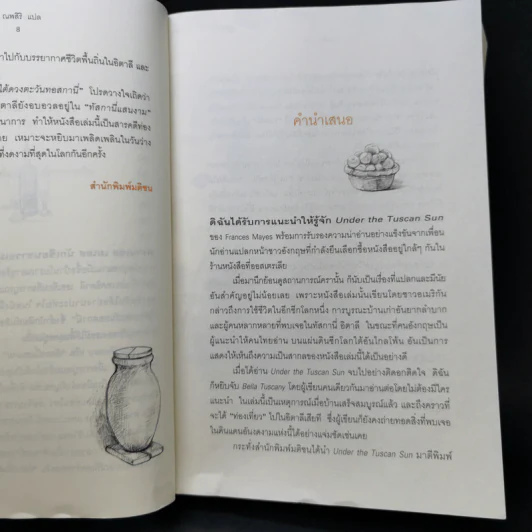 ณพสิริ แปล
ปกับบรรยากาศชีวิตพื้นถิ่นในอิตาลี และ
ใต้ดวงตะวันทอสกานี่” โปรดวางใจเถิดว่า
ตาลียังอบอวลอยู่ใน “ทัสกานีแสนงาม”
นาการ ทำให้หนังสือเล่มนี้เป็นสารคดีท่อง
ย เหมาะจะหยิบมาเพลิดเพลินในวันว่าง
ที่งดงามที่สุดในโลกกันอีกครั้ง
สำนักพิมพ์มติชน
คำนำเสนอ
ดิฉันได้รับการแนะนำให้รู้จัก Under the Tuscan Sun
ของ Frances Mayes พร้อมการรับรองความน่าอ่านอย่างแข็งขันจากเพื่อน
นักอ่านแปลกหน้าชาวอังกฤษที่กำลังยืนเลือกซื้อหนังสืออยู่ใกล้ๆ กันใน
ร้านหนังสือที่ออสเตรเลีย
เมื่อมานึกย้อนดูสถานการณ์ครานั้น ก็นับเป็นเรื่องที่แปลกและมีนัย
อันสำคัญอยู่ไม่น้อยเลย เพราะหนังสือเล่มนั้นเขียนโดยชาวอเมริกัน
กล่าวถึงการใช้ชีวิตในอีกซีกโลกหนึ่ง การบูรณะบ้านเก่าอันยากลำบาก
และผู้คนหลากหลายที่พบเจอในทัสกานี อิตาลี ในขณะที่คนอังกฤษเป็น
ผู้แนะนำให้คนไทยอ่าน บนแผ่นดินซีกโลกใต้อันไกลโพ้น อันเป็นการ
แสดงให้เห็นถึงความเป็นสากลของหนังสือเล่มนี้ได้เป็นอย่างดี
เมื่อได้อ่าน Under the Tuscan Sun จบไปอย่างติดอกติดใจ ดิฉัน
ก็หยิบจับ Bella Tuscany โดยผู้เขียนคนเดียวกันมาอ่านต่อโดยไม่ต้องมีใคร
แนะนำ ในเล่มนี้เป็นเหตุการณ์เมื่อบ้านเสร็จสมบูรณ์แล้ว และถึงคราวที่
จะได้ “ท่องเที่ยว” ไปในอิตาลีเสียที ซึ่งผู้เขียนก็ยังคงถ่ายทอดสิ่งที่พบเจอ
ในดินแดนอันงดงามแห่งนี้ได้อย่างแจ่มชัดเช่นเคย
กระทั่งสำนักพิมพ์มติชนได้นำ Under the Tuscan Sun มาตีพิมพ์